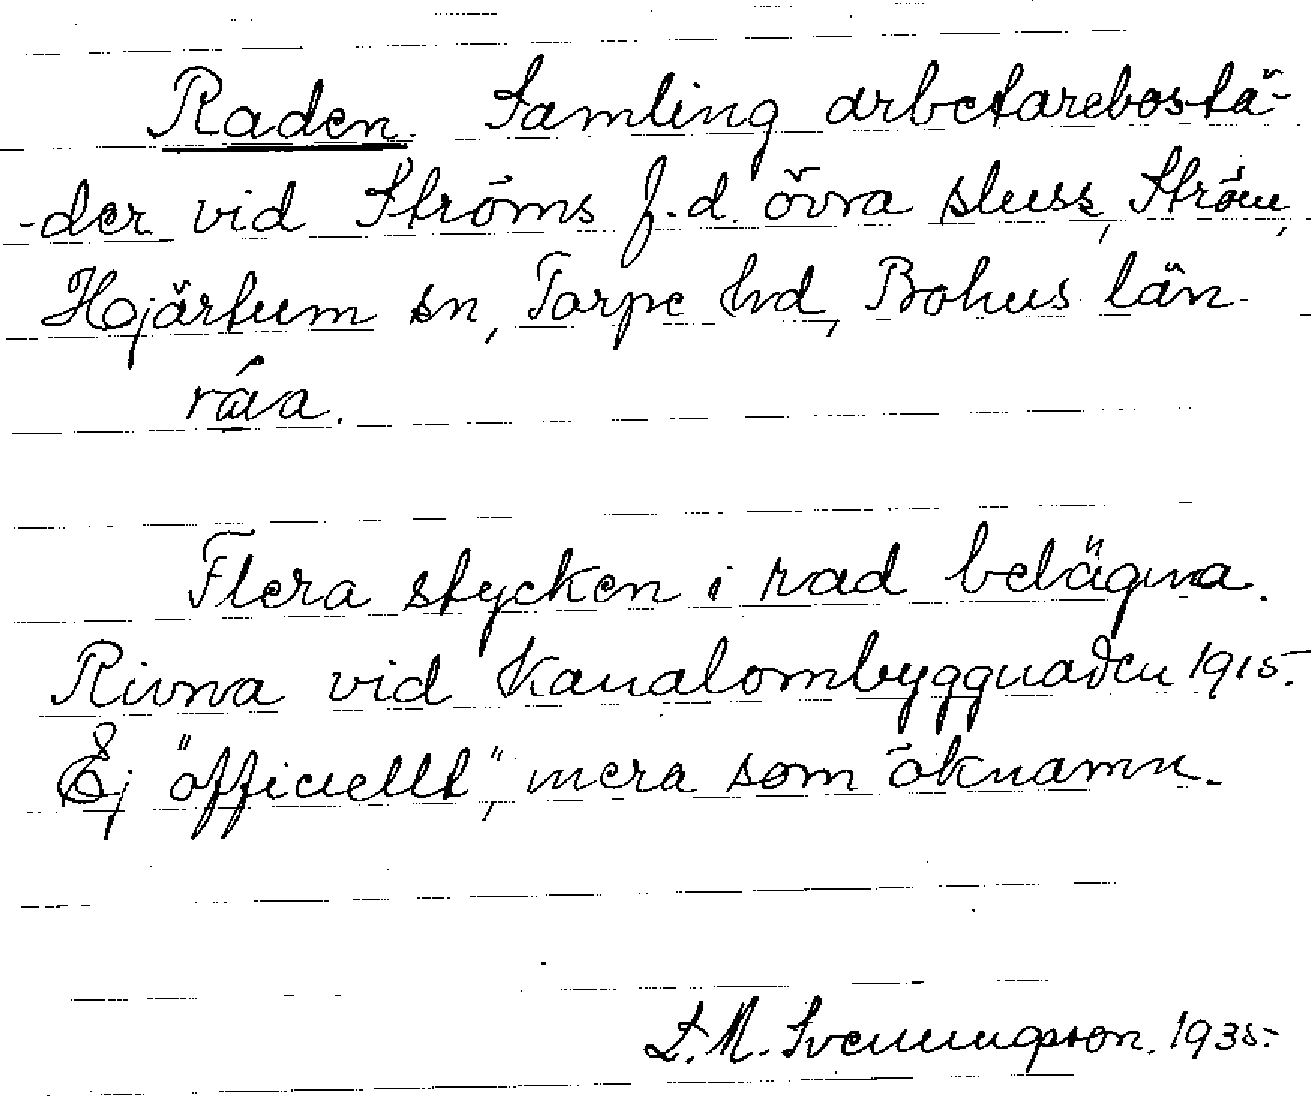 Raden. Samling arbetarebostä-
-der vid Ströms f.d. övra sluss, Ström,
Hjärtum sn, Torpe hd, Bohus län.
ráa.
Flera stycken i rad belägna.
Rivna vid Kanalombyggnaden 1915.
Ej "officiellt", mera som öknamn.
L.M. Svenungsson. 1935.